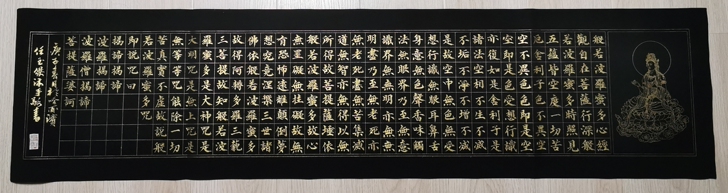 般若波羅蜜多心經
觀自在菩薩行深般
若波羅蜜多時照見
五蘊皆空度一切苦
厄舍利子色不異空
空不異色色即是空
空即是色受想行識
亦復如是舍利子是
諸法空相不生不滅
不垢不淨不增不減
是故空中無色無受
想行識無眼耳鼻舌
身意無色聲香味觸
法無眼界乃至無意
識界無無明亦無無
明盡乃至無老死亦
無老死盡無苦集滅
道無智亦無得以無
所得故菩提薩埵依
般若波羅蜜多故心
無罣礙無罣礙故無
有恐怖遠離顛倒夢
想究竟涅槃三世諸
佛依般若波羅蜜多
故得阿耨多羅三藐
三菩提故知般若波
羅蜜多是大神咒是
大明咒是無上咒是
無等等咒能除一切
苦真實不虛故說般
若波羅蜜多咒
即說咒曰
揭諦揭諦
波羅揭諦
波羅僧揭諦
菩提薩婆訶
庚子
任玉沐手敬書